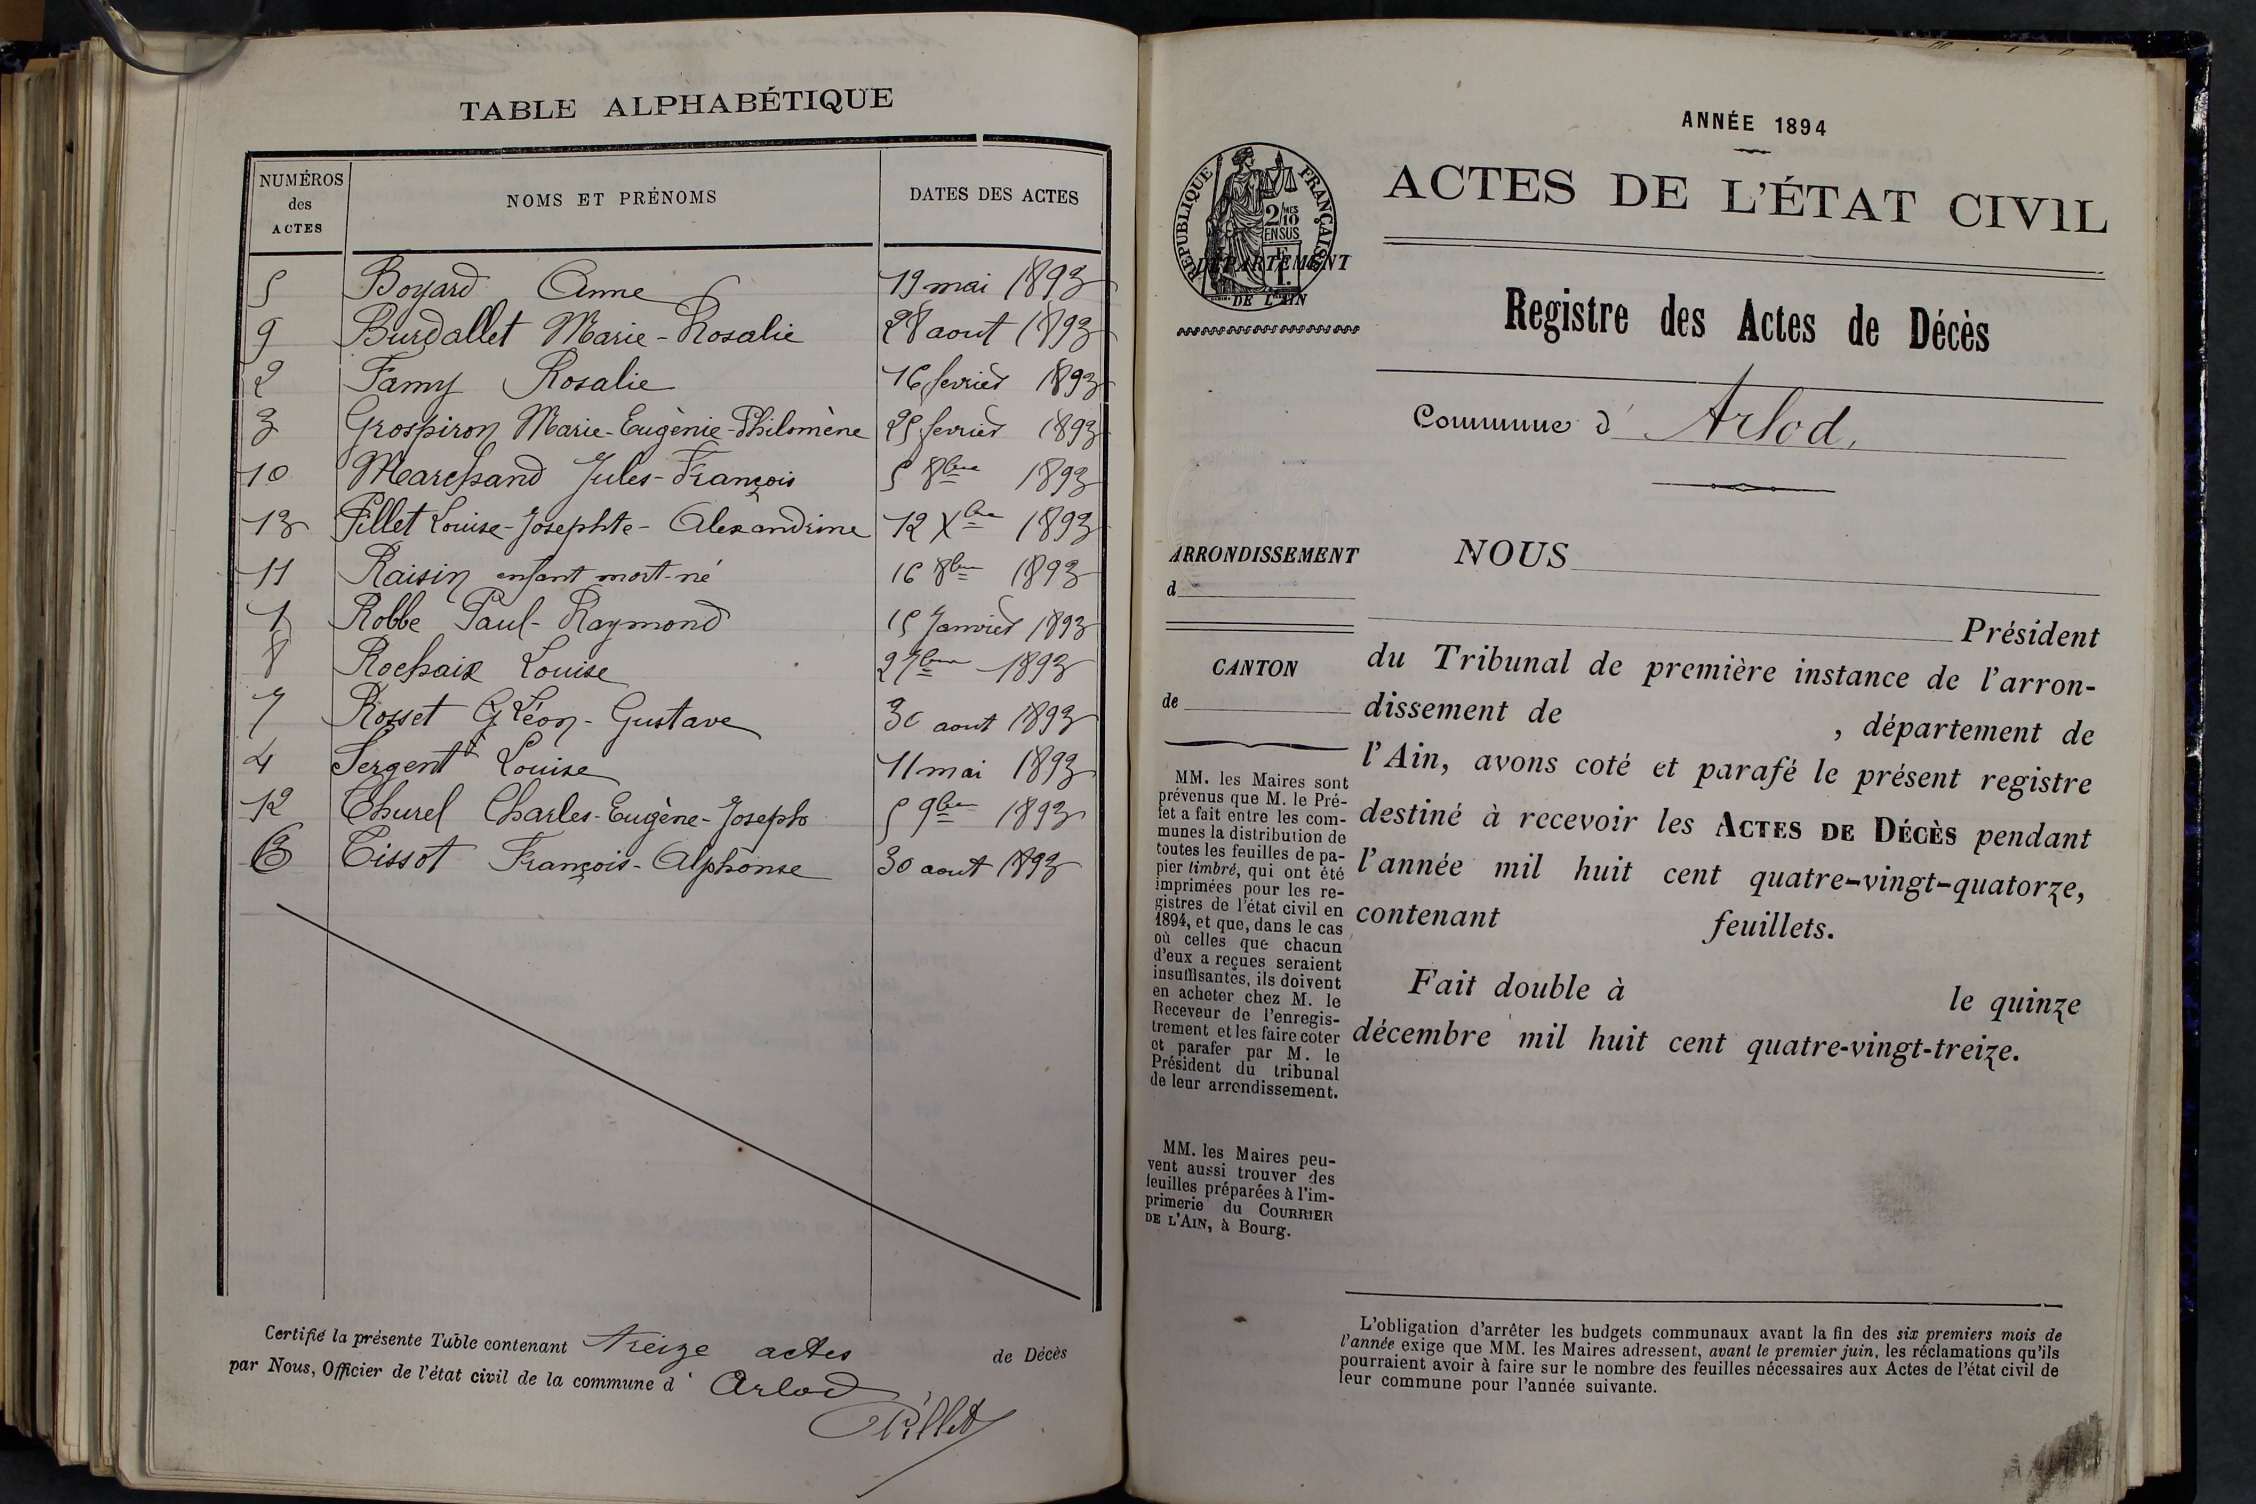 TABLE ALPHABÉTIQUE
NUMÉROS des ACTES
NOMS ET PRÉNOMS
DATES DES ACTES
5 Boyard Anne 19 mai 1893
9 Burdallet Marie-Rosalie 28 aout 1893
2 Famy Rosalie 16 fevrier 1893
3 Grospiron Marie-Eugènie-Philomène 25 fevrier 1893
10 Marchand Jules-François 5 8bre 1893
13 Pillet Louise-Josephte-Alexandrine 12 Xbre 1893
11 Raisin enfant mort-né 16 8bre 1893
1 Robbe Paul-Raymond 15 Janvier 1893
8 Rochaix Louise 2 7bre 1893
7 Rosset Léon-Gustave 30 aout 1893
4 Sergent Louise 11 mai 1893
12 Thurel Charles-Eugène-Joseph 5 9bre 1893
6 Tissot François-Alphonse 30 aout 1893
Certifié la présente Table contenant treize actes de Décès
par Nous, Officier de l'état civil de la commune d' Arlod
Pillet
ANNÉE 1894
ACTES DE L'ÉTAT CIVIL
RÉPUBLIQUE FRANÇAISE
2/10MES
EN SUS
DÉPARTEMENT
DE L'AIN
Registre des Actes de Décès
Commune d' Arlod.
ARRONDISSEMENT
d
CANTON
de
MM. les Maires sont
prévenus que M. le Pré-
fet a fait entre les com-
munes la distribution de
toutes les feuilles de pa-
pier timbré, qui ont été
imprimées pour les re-
gistres de l'état civil en
1894, et que, dans le cas
où celles que chacun
d'eux a reçues seraient
insuffisantes, ils doivent
en acheter chez M. le
Receveur de l'enregis-
trement et les faire coter
et parafer par M. le
Président du tribunal
de leur arrondissement.
MM. les Maires peu-
vent aussi trouver des
feuilles préparées à l'im-
primerie du COURRIER
DE L'AIN, à Bourg.
NOUS
Président
du Tribunal de première instance de l'arron-
dissement de , département de
l'Ain, avons coté et parafé le présent registre
destiné à recevoir les ACTES DE DÉCÈS pendant
l'année mil huit cent quatre-vingt-quatorze,
contenant feuillets.
Fait double à le quinze
décembre mil huit cent quatre-vingt-treize.
L'obligation d'arrêter les budgets communaux avant la fin des six premiers mois de
l'année exige que MM. les Maires adressent, avant le premier juin, les réclamations qu'ils
pourraient avoir à faire sur le nombre des feuilles nécessaires aux Actes de l'état civil de
leur commune pour l'année suivante.